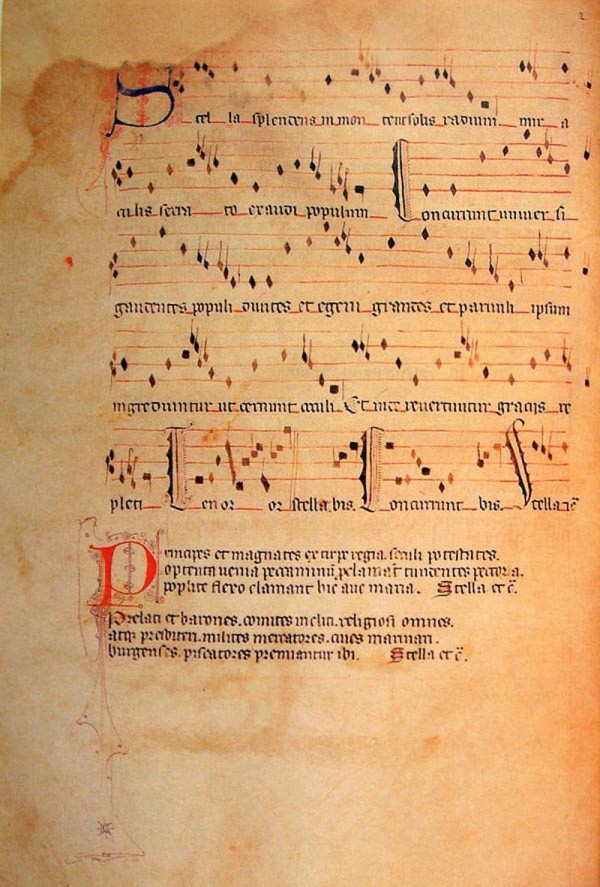 2
Stel la splendens in mon te ut solis radium mir a
culis serra to exaudi populum Concurrunt univer si
gaudentes populi divites et egeni grandes et parvuli ipsum
ingrediuntur ut cernunt oculi Et inde revertuntur graciis re
pleti Tenor or stella bis. Concurrunt bis. Stella
Principes et magnates ex tirpe regia. seculi potestates.
optenta venia peccaminum tundentes pectora.
poplite flexo clamant hic ave maria. Stella et c.
Prelati et barones. comites incliti. religiosi omnes.
atque presbiteri. milites mercatores. cives marinari.
burgenses. piscatores premiantur ibi. Stella et c.